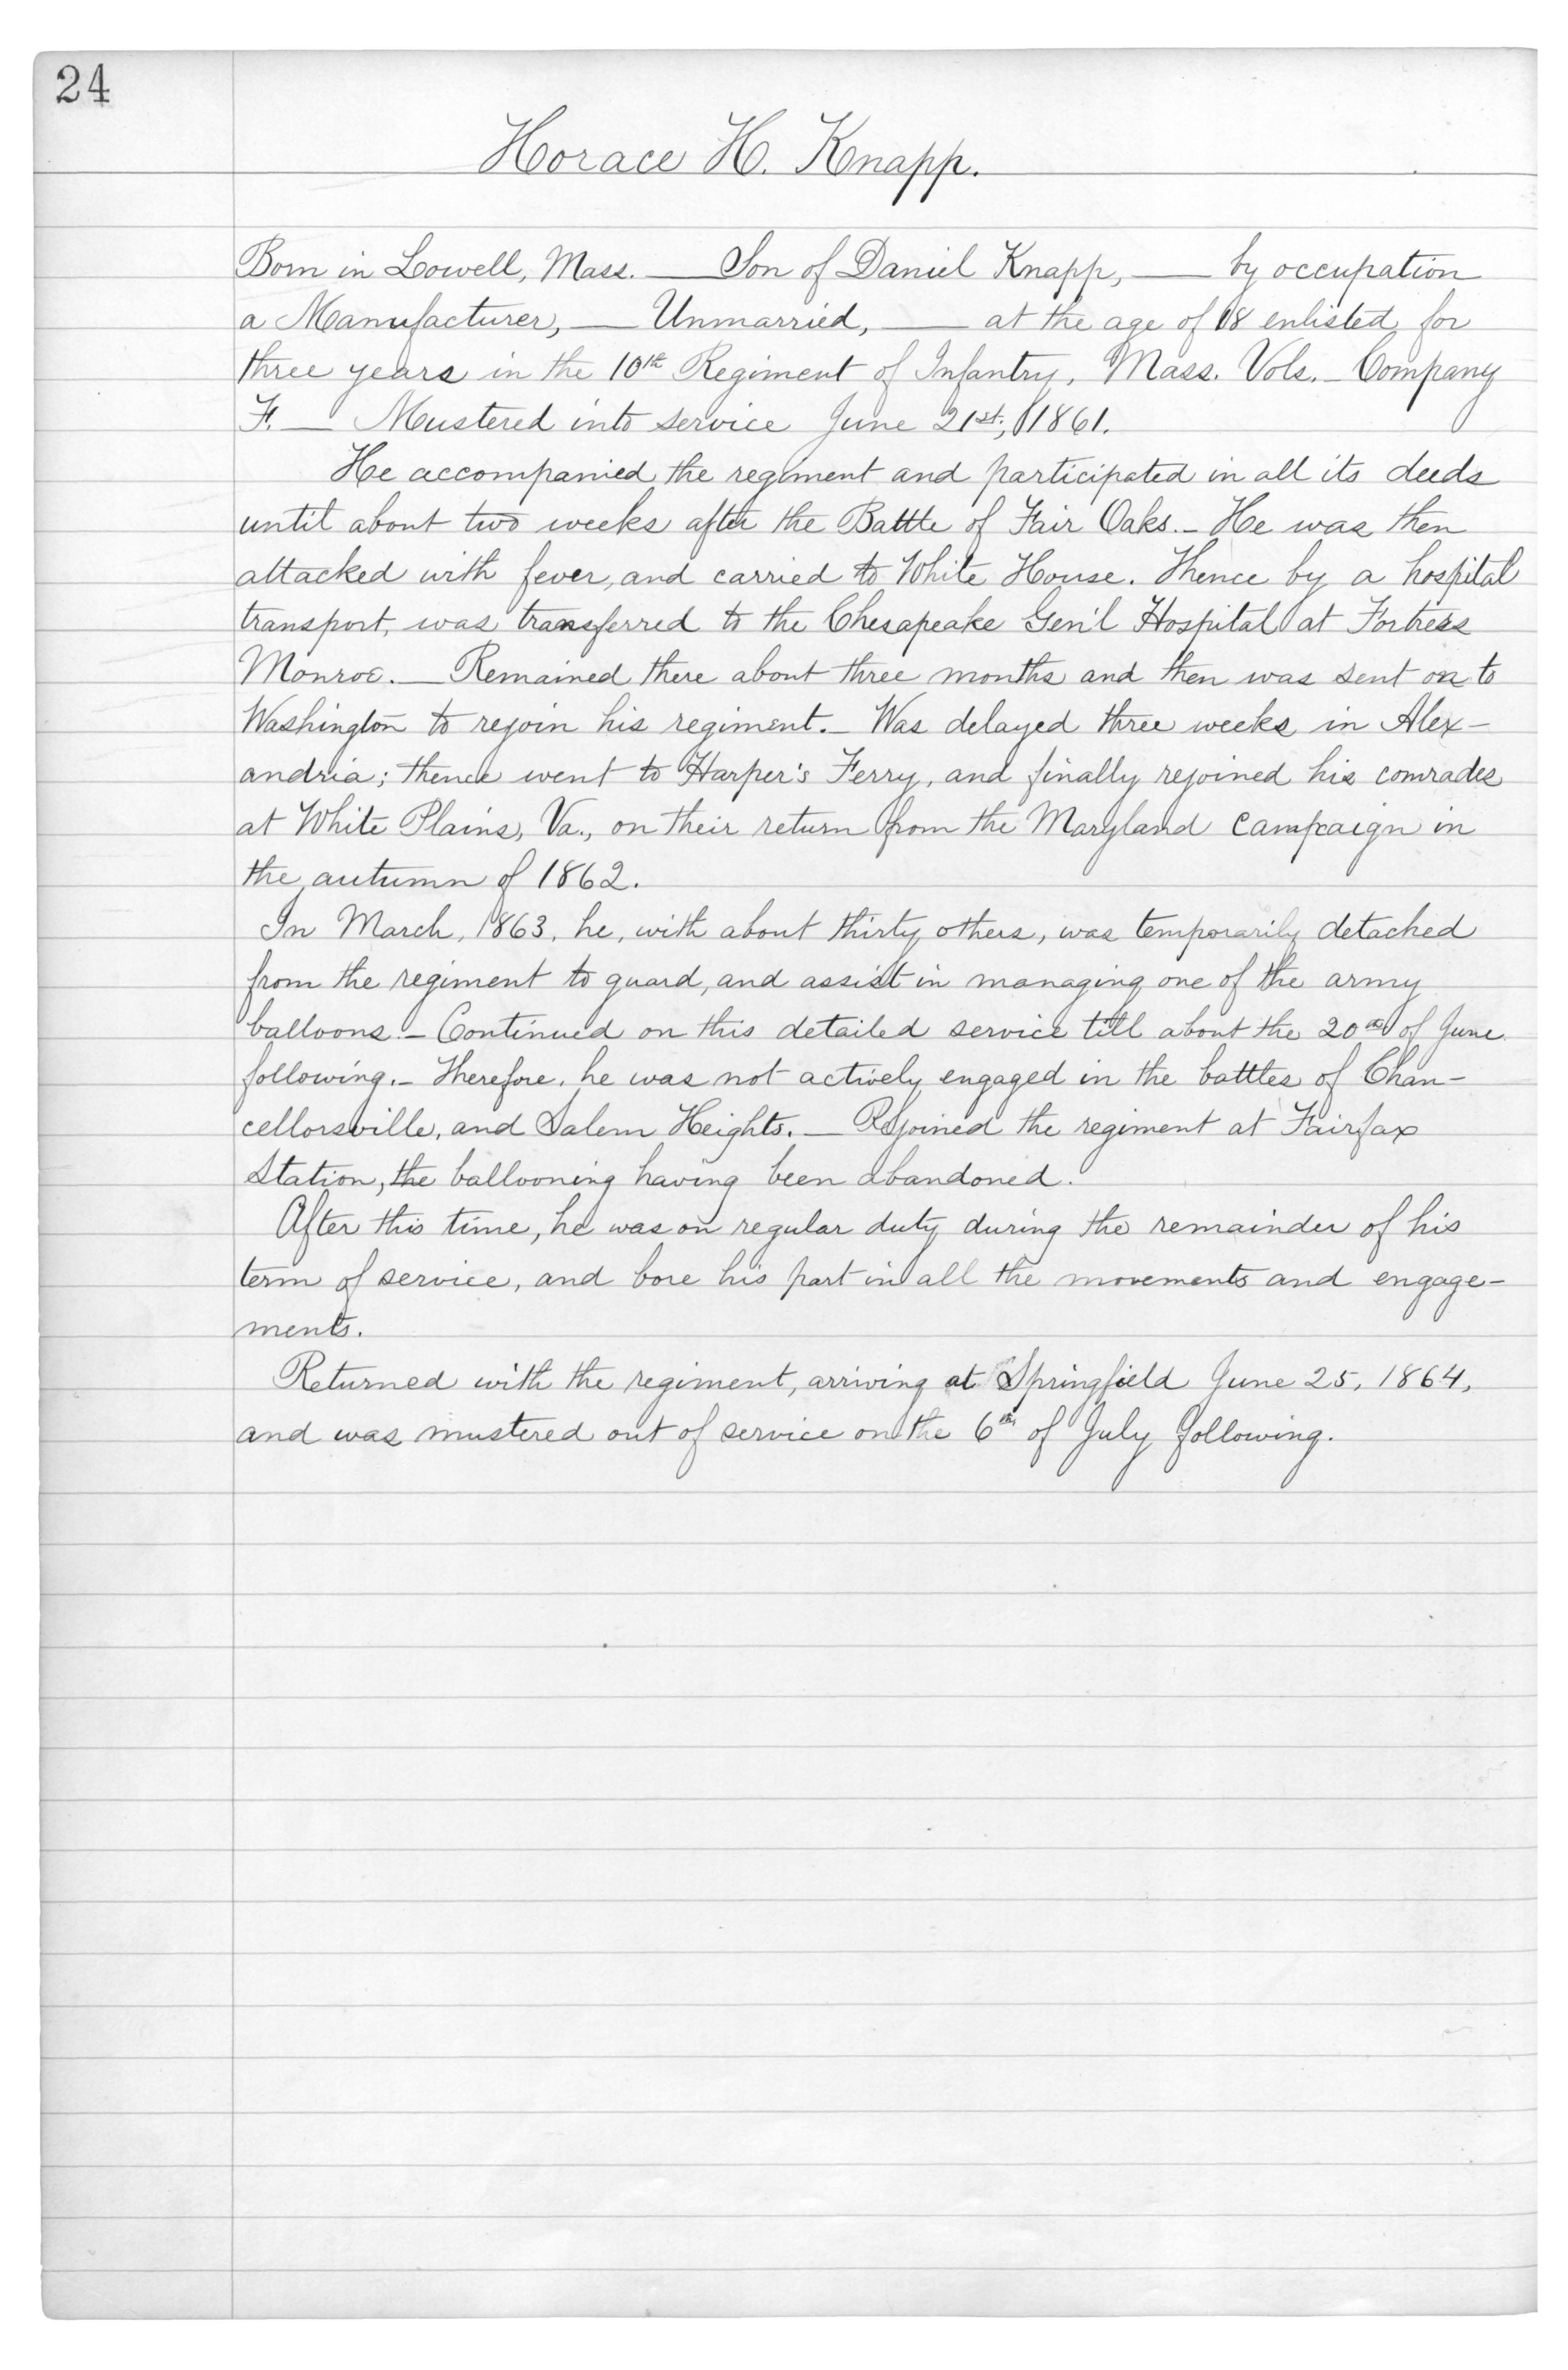 24
Horace H. Knapp.
Born in Lowell, Mass. — Son of Daniel Knapp, — by occupation
a Manufacturer, — Unmarried, — at the age of 18 enlisted for
three years in the 10th Regiment of Infantry, Mass. Vols. - Company
F. — Mustered into service June 21st, 1861.
He accompanied the regiment and participated in all its deeds
until about two weeks after the Battle of Fair Oaks. - He was then
attacked with fever, and carried to White House. Thence by a hospital
transport, was transferred to the Chesapeake Gen'l Hospital at Fortress
Monroe. — Remained there about three months and then was sent on to
Washington to rejoin his regiment. - Was delayed three weeks in Alex-
andria; thence went to Harper's Ferry, and finally rejoined his comrades
at White Plains, Va., on their return from the Maryland campaign in
the autumn of 1862.
In March, 1863, he, with about thirty others, was temporarily detached
from the regiment to guard, and assist in managing one of the army
balloons. - Continued on this detailed service till about the 20th of June
following. - Therefore, he was not actively engaged in the battles of Chan-
cellorsville, and Salem Heights. — Rejoined the regiment at Fairfax
Station, the ballooning having been abandoned.
After this time, he was on regular duty during the remainder of his
term of service, and bore his part in all the movements and engage-
ments.
Returned with the regiment, arriving at Springfield June 25, 1864,
and was mustered out of service on the 6th of July following.